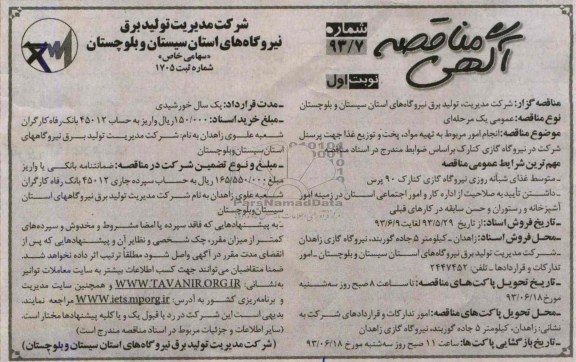 آگهی مناقصه
شماره
۹۳/۷
نوبت اول
شرکت مدیریت تولید برق
نیروگاه‌های استان سیستان و بلوچستان
«سهامی خاص»
شماره ثبت ۱۷۰۵
مناقصه گزار: شرکت مدیریت، تولید برق نیروگاه‌های استان سیستان و بلوچستان
نوع مناقصه: عمومی یک مرحله‌ای
موضوع مناقصه: انجام امور مربوط به تهیه مواد، پخت و توزیع غذا جهت پرسنل
شرکت در نیروگاه گازی کنارک براساس ضوابط مندرج در اسناد مناقصه
مهم‌ترین شرایط عمومی مناقصه
ـ متوسط غذای شبانه روزی نیروگاه گازی کنارک ۹۰ پرس
ـ داشتن تأیید به صلاحیت از اداره کار و امور اجتماعی استان در زمینه امور
آشپزخانه و رستوران و حسن سابقه در کارهای قبلی
ـ تاریخ فروش اسناد: از تاریخ ۹۳/۵/۲۹ لغایت ۹۳/۶/۹
ـ محل فروش اسناد: زاهدان ـ کیلومتر ۵ جاده گوربند، نیروگاه گازی زاهدان
ـ شرکت مدیریت تولید برق نیروگاه‌های استان سیستان و بلوچستان ـ امور
تدارکات و قراردادها ـ تلفن: ۲۴۴۷۴۵۲
ـ تاریخ تحویل پاکت‌های مناقصه: تا ساعت ۸ صبح روز سه‌شنبه
مورخ ۹۳/۰۶/۱۸
محل تحویل پاکت‌های مناقصه: امور تدارکات و قراردادهای شرکت به
نشانی: زاهدان، کیلومتر ۵ جاده گوربند، نیروگاه گازی زاهدان
ـ تاریخ بازگشایی پاکت‌ها: ساعت ۱۱ صبح روز سه‌شنبه مورخ ۹۳/۰۶/۱۸
ـ مدت قرارداد: یک سال خورشیدی
ـ مبلغ خرید اسناد: ۱۵۰/۰۰۰ ریال واریز به حساب ۴۵۰۱۲ بانک رفاه کارگران
شعبه علوی زاهدان به نام: شرکت مدیریت تولید برق نیروگاههای
استان سیستان و بلوچستان
ـ مبلغ و نوع تضمین شرکت در مناقصه: ضمانتنامه بانکی یا واریز
مبلغ ۱۶۵/۵۵۰/۰۰۰ ریال به حساب سپرده جاری ۴۵۰۱۲ بانک رفاه کارگران
شعبه علوی زاهدان به نام شرکت مدیریت تولید برق نیروگاههای استان
سیستان و بلوچستان
ـ به پیشنهادهایی که فاقد سپرده یا امضا مشروط و مخدوش و سپرده‌های
کمتر از میزان مقرر، چک شخصی و نظایر آن و پیشنهادهایی که پس از
انقضای مدت مقرر در آگهی واصل شود مطلقاً ترتیب اثر داده نخواهد شد.
ضمنا متقاضیان می‌توانند جهت کسب اطلاعات بیشتر به سایت معاملات توانیر
به‌نشانی: WWW.TAVANIR.ORG.IR و همچنین سایت مدیریت
و برنامه‌ریزی کشور به آدرس: WWW.iets.mporg.ir مراجعه نمایند،
بدیهی است این شرکت در رد یا قبول یک و یا کلیه پیشنهادها مختار است.
(سایر اطلاعات و جزئیات مربوط در اسناد مناقصه مندرج است)
(شرکت مدیریت تولید برق نیروگاه‌های استان سیستان و بلوچستان)
ParsNamadData